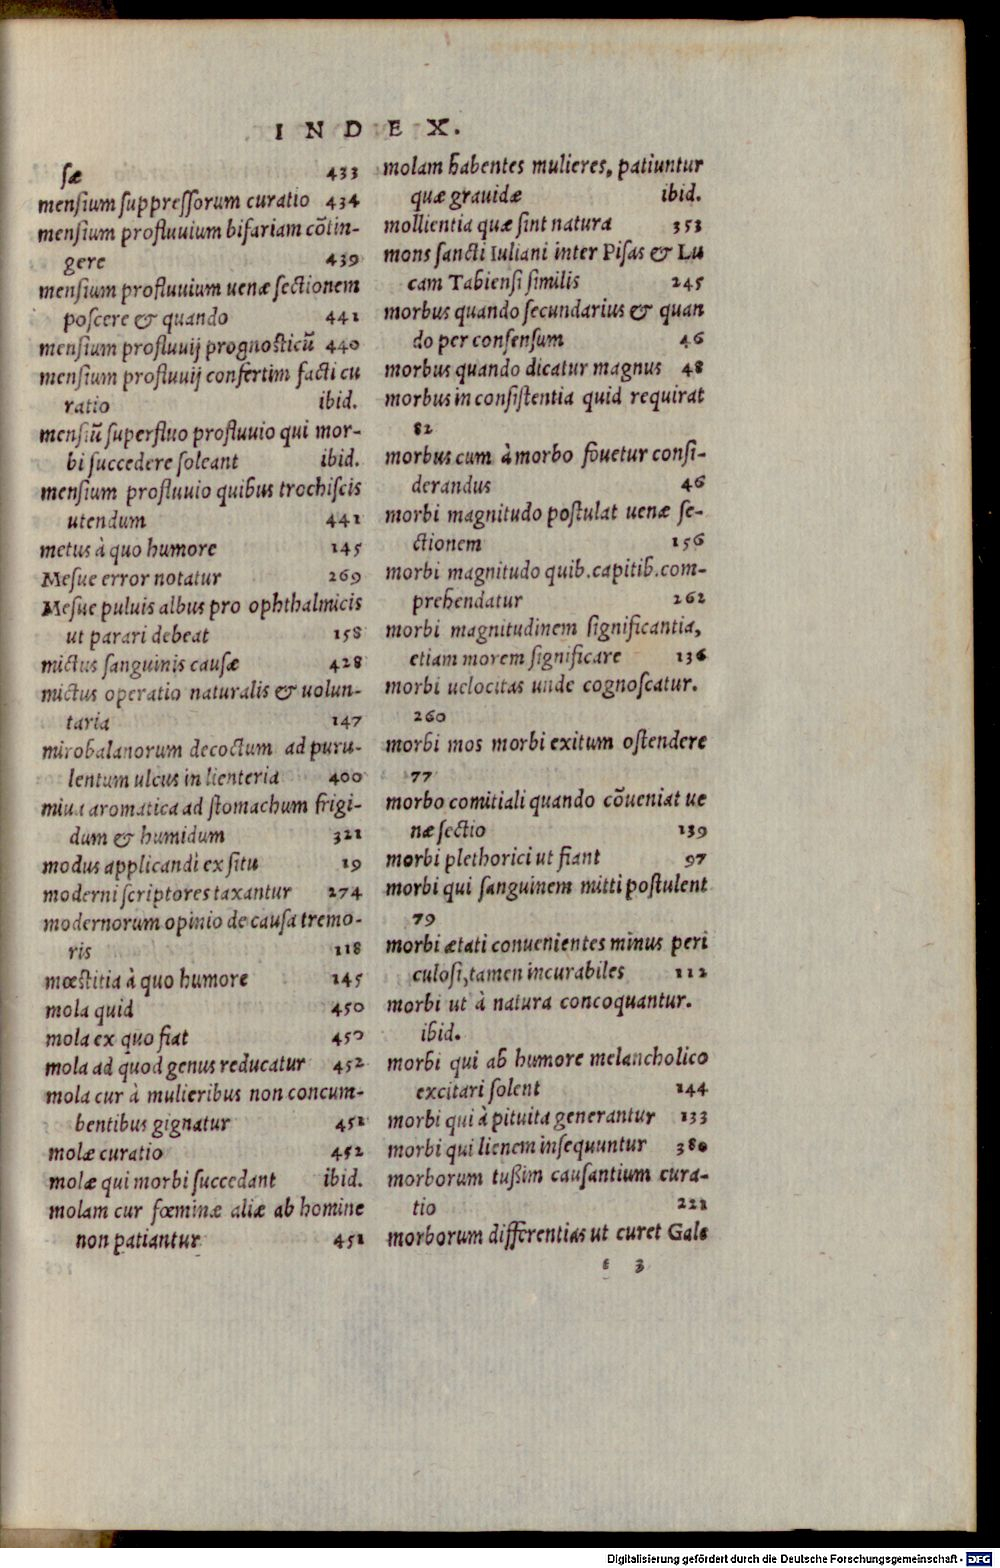 INDEX.
sæ 433
mensium suppressorum curatio 434
mensium profluuium bifariam cõtin-
gere 439
mensium profluuium uenæ sectionem
poscere & quando 441
mensium profluuij prognosticũ 440
mensium profluuij confertim facti cu
ratio ibid.
mensiũ superfluo profluuio qui mor-
bi succedere soleant ibid.
mensium profluuio quibus trochiscis
utendum 441
metus à quo humore 145
Mesue error notatur 269
Mesue puluis albus pro ophthalmicis
ut parari debeat 158
mictus sanguinis causæ 428
mictus operatio naturalis & uolun-
taria 147
mirobalanorum decoctum ad puru-
lentum ulcus in lienteria 400
miua aromatica ad stomachum frigi-
dum & humidum 321
modus applicandi ex situ 19
moderni scriptores taxantur 274
modernorum opinio de causa tremo-
ris 118
mœstitia à quo humore 145
mola quid 450
mola ex quo fiat 450
mola ad quod genus reducatur 452
mola cur à mulieribus non concum-
bentibus gignatur 451
molæ curatio 452
molæ qui morbi succedant ibid.
molam cur fœminæ aliæ ab homine
non patiantur 451
molam habentes mulieres, patiuntur
quæ grauidæ ibid.
mollientia quæ sint natura 353
mons sancti Iuliani inter Pisas & Lu
cam Tabiensi similis 245
morbus quando secundarius & quan
do per consensum 46
morbus quando dicatur magnus 48
morbus in consistentia quid requirat
82
morbus cum à morbo fouetur consi-
derandus 46
morbi magnitudo postulat uenæ se-
ctionem 156
morbi magnitudo quib. capitib. com-
prehendatur 262
morbi magnitudinem significantia,
etiam morem significare 136
morbi uelocitas unde cognoscatur.
260
morbi mos morbi exitum ostendere
77
morbo comitiali quando cõueniat ue
næ sectio 139
morbi plethorici ut fiant 97
morbi qui sanguinem mitti postulent
79
morbi ætati conuenientes minus peri
culosi, tamen incurabiles 112
morbi ut à natura concoquantur.
ibid.
morbi qui ab humore melancholico
excitari solent 144
morbi qui à pituita generantur 133
morbi qui lienem insequuntur 380
morborum tußim causantium cura-
tio 221
morborum differentias ut curet Gale
3
Digitalisierung gefördert durch die Deutsche Forschungsgemeinschaft - DFG